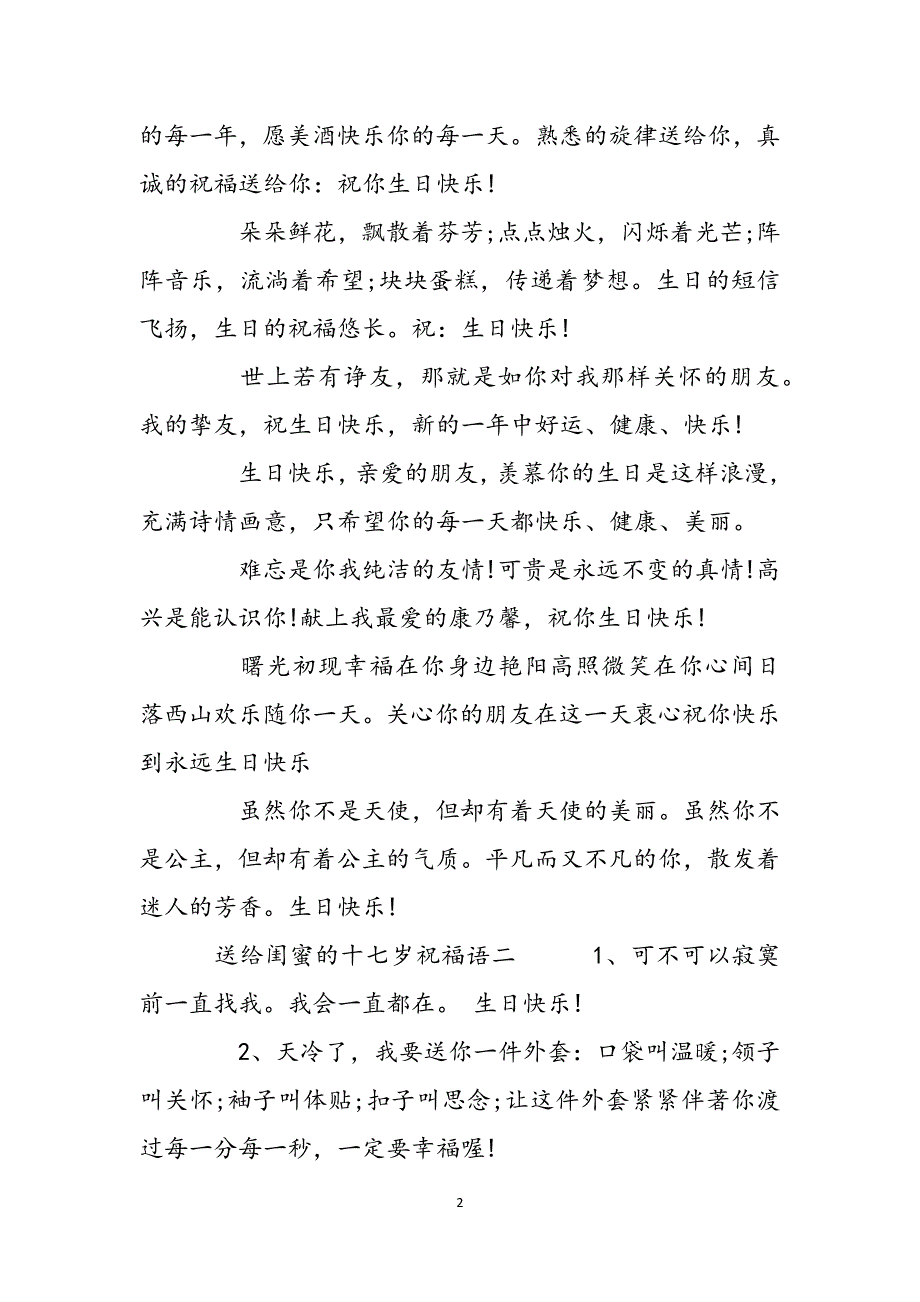 的每一年，愿美酒快乐你的每一天。熟悉的旋律送给你，真
诚的祝福送给你：祝你生日快乐!
朵朵鲜花，飘散着芬芳;点点烛火，闪烁着光芒;阵
阵音乐，流淌着希望;块块蛋糕，传递着梦想。生日的短信
飞扬，生日的祝福悠长。祝：生日快乐!
世上若有诤友，那就是如你对我那样关怀的朋友。
我的挚友，祝生日快乐，新的一年中好运、健康、快乐!
生日快乐，亲爱的朋友，羡慕你的生日是这样浪漫，
充满诗情画意，只希望你的每一天都快乐、健康、美丽。
难忘是你我纯洁的友情!可贵是永远不变的真情!高
兴是能认识你!献上我最爱的康乃馨，祝你生日快乐!
曙光初现幸福在你身边艳阳高照微笑在你心间日
落西山欢乐随你一天。关心你的朋友在这一天衷心祝你快乐
到永远生日快乐
虽然你不是天使，但却有着天使的美丽。虽然你不
是公主，但却有着公主的气质。平凡而又不凡的你，散发着
迷人的芳香。生日快乐!
送给闺蜜的十七岁祝福语二 1、可不可以寂寞
前一直找我。我会一直都在。 生日快乐!
2、天冷了，我要送你一件外套：口袋叫温暖;领子
叫关怀;袖子叫体贴;扣子叫思念;让这件外套紧紧伴著你渡
过每一分每一秒，一定要幸福喔!
2